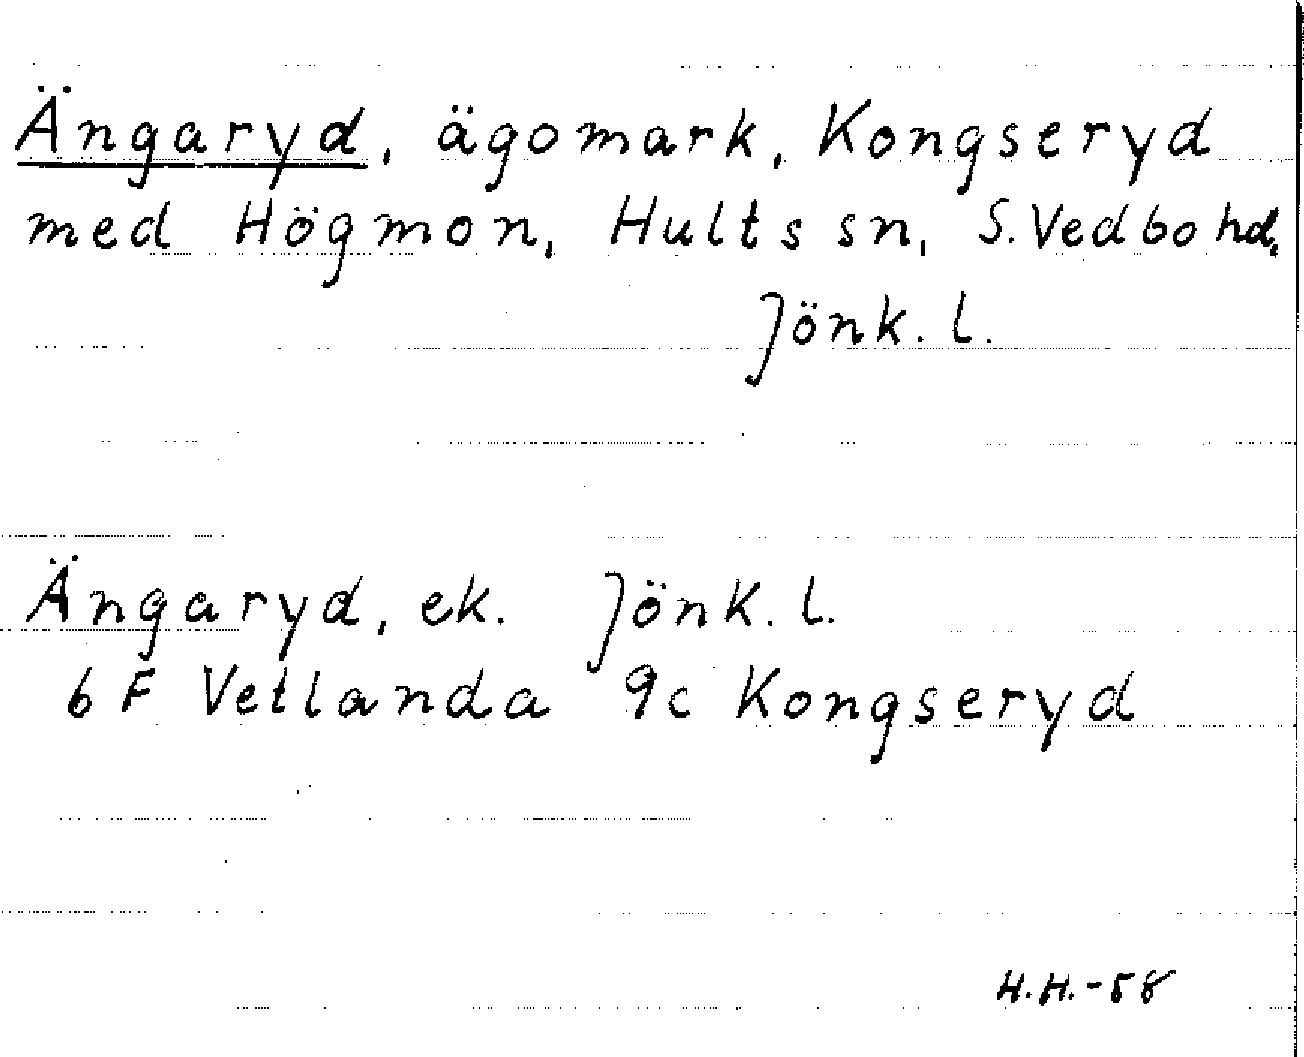 Ängaryd, ägomark, Kongseryd
med Högmon, Hults sn, S. Vedbo hd,
Jönk. l.
Ängaryd, ek. Jönk. l.
6 F Vetlanda 9c Kongseryd
H.H.-58